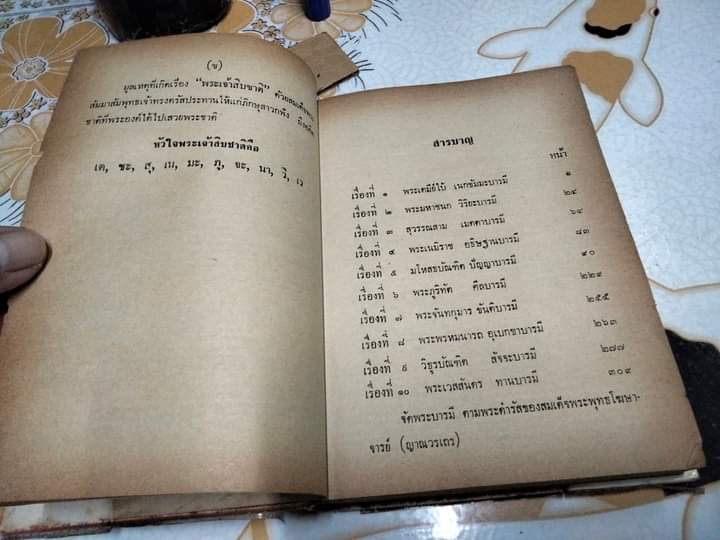 (ข)
มูลเหตุที่เกิดเรื่อง “พระเจ้าสิบชาติ” ด้วยสมเด็จพระ
สัมมาสัมพุทธเจ้าทรงตรัสประทานให้แก่ภิกษุสาวกฟัง ถึงเรื่อง
ชาติที่พระองค์ได้ไปเสวยพระชาติ
หัวใจพระเจ้าสิบชาติคือ
เต, ชะ, สุ, เน, มะ, ภู, จะ, นา, วิ, เว
สารบาญ
หน้า
เรื่องที่ ๑ พระเตมีย์ใบ้ เนกขัมมะบารมี ๑
เรื่องที่ ๒ พระมหาชนก วิริยะบารมี ๒๔
เรื่องที่ ๓ สุวรรณสาม เมตตาบารมี ๖๔
เรื่องที่ ๔ พระเนมิราช อธิษฐานบารมี ๘๓
เรื่องที่ ๕ มโหสธบัณฑิต ปัญญาบารมี ๙๐
เรื่องที่ ๖ พระภูริทัต ศีลบารมี ๒๒๙
เรื่องที่ ๗ พระจันทกุมาร ขันติบารมี ๒๕๕
เรื่องที่ ๘ พระพรหมนารถ อุเบกขาบารมี ๒๖๓
เรื่องที่ ๙ วิธูรบัณฑิต สัจจะบารมี ๒๗๗
เรื่องที่ ๑๐ พระเวสสันดร ทานบารมี ๓๐๙
จัดพระบารมี ตามพระดำรัสของสมเด็จพระพุทธโฆษา-
จารย์ (ญาณวรเถร)